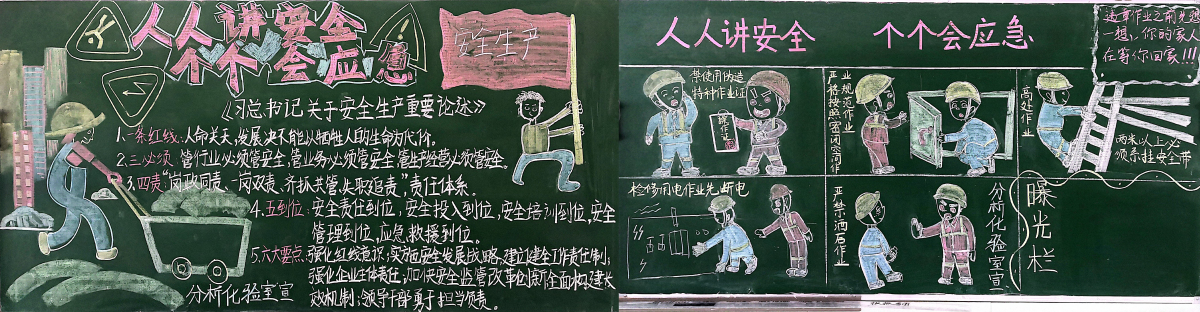 人人讲安全
个个会应急
安全生产
《习总书记关于安全生产重要论述》
1.一条红线:人命关天,发展决不能以牺牲人的生命为代价。
2.三必须:管行业必须管安全,管业务必须管安全,管生产经营必须管安全。
3.四责“党政同责、一岗双责、齐抓共管、失职追责”责任体系。
4.五到位:安全责任到位,安全投入到位,安全培训到位,安全
管理到位,应急救援到位。
5.六大要点:强化红线意识;实施安全发展战略,建立健全工作责任制;
强化企业主体责任;加快安全监管改革创新;全面构建长
效机制;领导干部勇于担当负责。
分析化验室宣
人人讲安全 个个会应急
违章作业之前先想
一想,你的家人
在等你回家!!!
禁使用伪造
特种作业证
操作证
严格按照密闭空间作
业规范作业
高处作业
两米以上必
须系挂安全带
检修用电作业先断电
严禁洒石作业
分析化验室宣
曝光栏